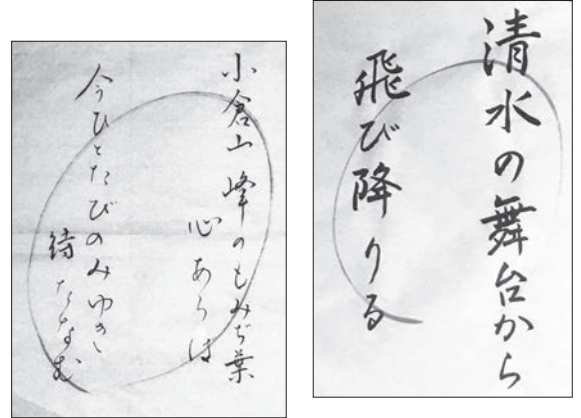 小倉山 峰のもみぢ葉
心あらは
今ひとたびのみゆき
待たなむ
清水の舞台から
飛び降りる